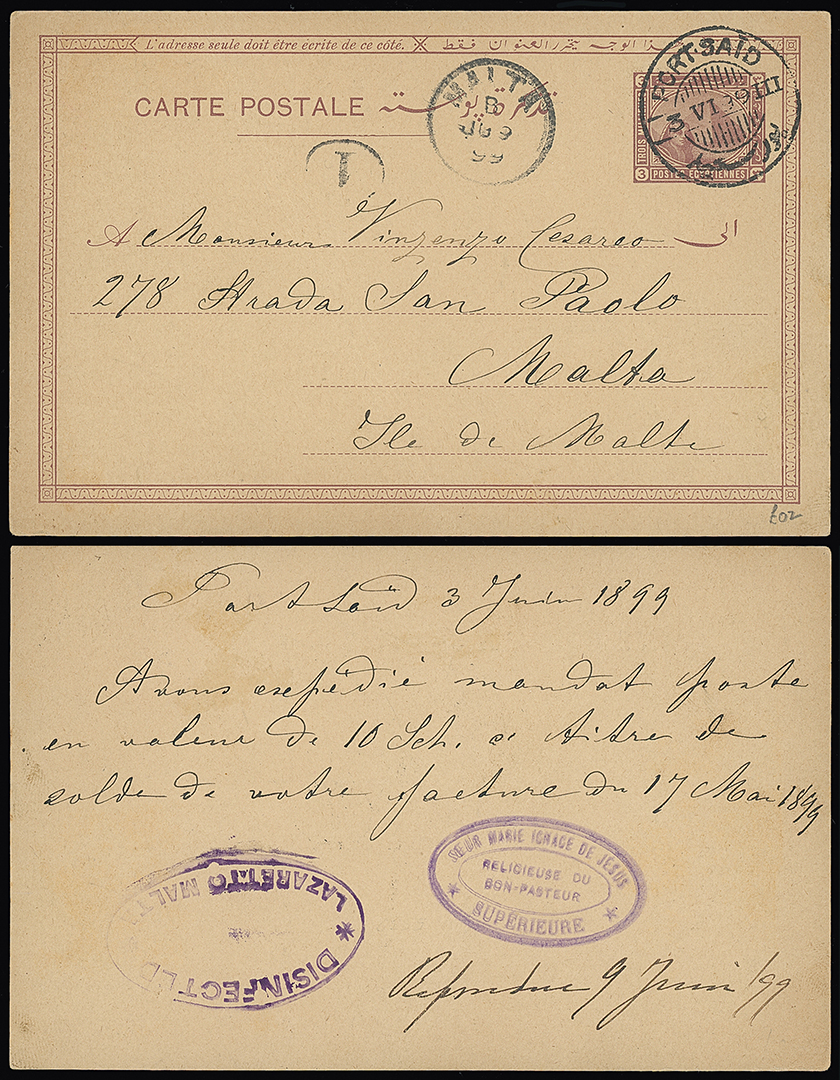 L'adresse seule doit être ecrite de ce côté.
هذا الوجه يحرر العنوان فقط
CARTE POSTALE تذكرة بوستة
PORT-SAID
3 VI 99 III
MALTA
B
JU 9
99
1
3 3
TROIS
POSTES EGYPTIENNES
A Monsieur Vinzenzo Cesareo الى
278 Strada San Paolo
Malta
Ile de Malte
Port Saïd 3 Juin 1899
Avons expédié mandat poste
en valeur de 10 Sch. à titre de
solde de votre facture du 17 Mai 1899
SŒUR MARIE IGNACE DE JESUS
RELIGIEUSE DU
BON-PASTEUR
* SUPÉRIEURE *
LAZARETTO MALTA
* DISINFECTED
9 Juin /99